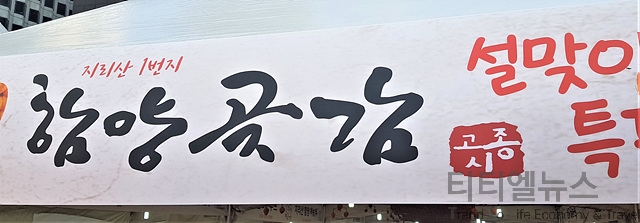 지리산 1번지
함양곶감
설맞이
특
고종시
티티엘뉴스
Trend to Life Economy & Travel